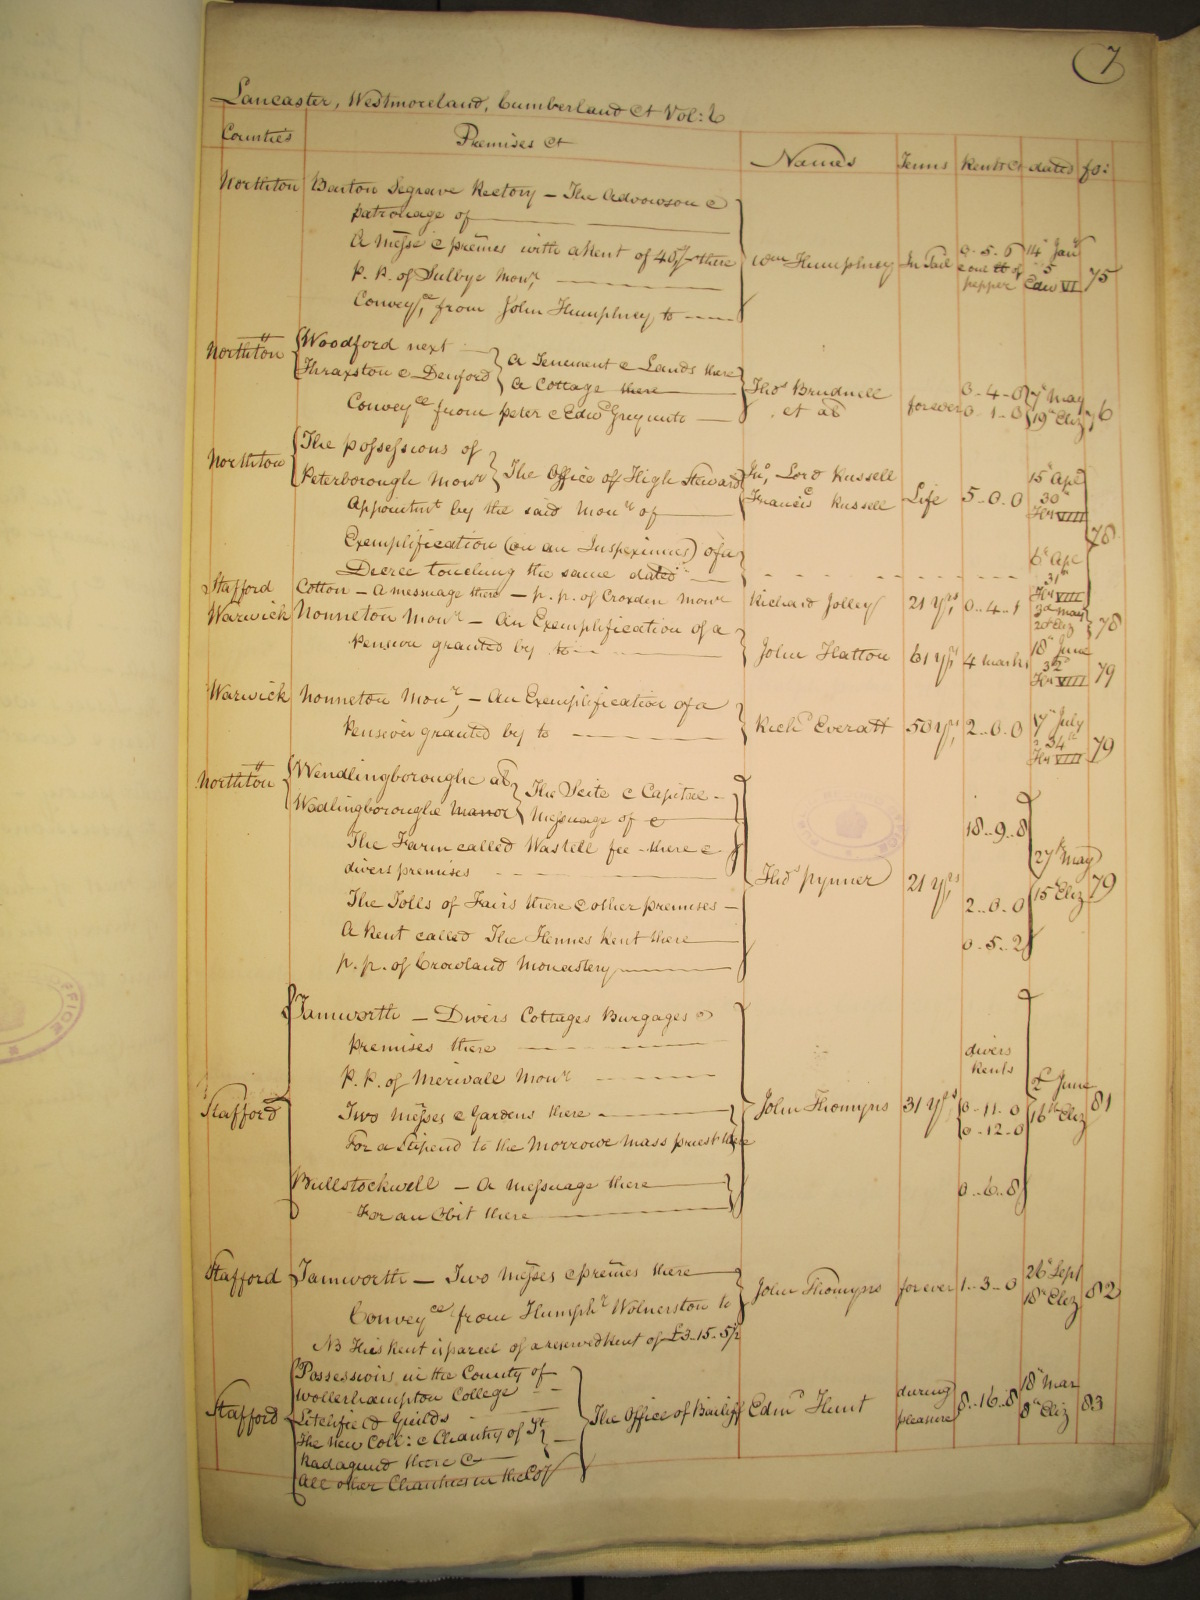 7
Lancaster, Westmoreland, Cumberland &c Vol: 6
Counties Premises &c Names Terms Rents &c dates fo:
Northton Barton Segrave Rectory — The Advowson &
patronage of
A Messe & premes with a Rent of 40s/ there
p. p. of Sulbye Mony
Conveyce from John Humphrey to
Wm Humphrey In Tail 0-5-6 & one lb of pepper 14 Jany 5 Edw VI 75
Northton Woodford next
Thraxston & Denford
A Tenement & Lands there
A Cottage there
Conveyce from Peter & Edwd
Thos Brudnell et al forever 0-4-0 0-1-0 7 May 19 Eliz 76
Northton The possessions of
Peterborough Mony The Office of High Steward
Appointmt by the said Mony of
Jno, Lord Russell
Francis Russell Life 5-0-0 15 Apl 30 Hen VIII
Exemplification (on an Inspeximus) of a
Decree touching the same dated
6 Apl 31 Hen VIII 78
Stafford Cotton — A messuage there — p. p. of Croxden Mony Richard Jolley 21 yrs 0..4..1 3d May 20th Eliz 78
Warwick Nonneton Mony — An Exemplification of a
Pension granted by to
John Hatton 61 yrs 4 marks 18 June 32 Hen VIII 79
Warwick Nonneton Mony, — An Exemplification of a
Pension granted by to
Richd Everatt 50 yrs 2..0..0 17 July 34 Hen VIII 79
Northton Wendlingboroughe als
Wedlingboroughe Manor
The Scite & Capital
Messuage of &
The Farm called Wastell fee there &
divers premises
18..9..8
The Tolls of Fairs there & other premises
2..0..0
A Rent called The Hennes Rent there
0..5..2
p. p. of Crowland Monastery
Thos Pynner 21 yrs 27th May 15 Eliz 79
Stafford Tamworth — Divers Cottages Burgages &
premises there
P. P. of Merivale Mony
divers Rents
Two Messes & Gardens there
For a Stipend to the Morrowe Mass priest there
0-11-0
0-12-0
Bullstockwell — A messuage there
For an Obit there
0..6..8
John Thomyns 31 yrs June 16th Eliz 81
Stafford Tamworth — Two Messes & premes there
Conveyce from Humphy Wolnerston to
John Thomyns for ever 1..3..0 26 Sept 18 Eliz 82
NB This Rent is parcel of a reserved Rent of £3-15-5½
Stafford Possessions in the County of
Wollerhampton College
Litchfield Guilds
The New Coll: & Chantry of St
Radagund there &
All other Chantries in the Coy
The Office of Bailiff Edmd Hunt during pleasure 8..16..8 18 Mar 8 Eliz 83